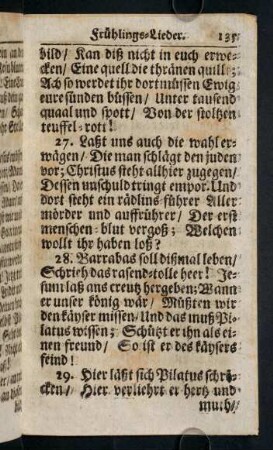 Frühlings-Lieder. 135
bild/ Kan diß nicht in euch erwe-
cken/ Eine quell die thränen quillt;
Ach so werdet ihr dort müssen Ewig
eure sünden büssen/ Unter tausend
quaal und spott/ Von der stoltzen
teuffel-rott!
27. Laßt uns auch die wahl er-
wägen/ Die man schlägt den juden
vor; Christus steht allhier zugegen/
Dessen unschuld tringt empor. Und
dort steht ein rädlins-führer Aller
mörder und auffrührer/ Der erst
menschen-blut vergoß; Welchen
wollt ihr haben loß?
28. Barrabas soll dißmal leben/
Schrieh das rasend-tolle heer! Je-
sum laß ans creutz hergeben; Wann
er unser könig wär/ Müßten wir
den käyser missen/ Und das muß Pi-
latus wissen; Schützt er ihn als ei-
nen freund/ So ist er des käysers
feind!
29. Hier läßt sich Pilatus schrö-
cken/ Hier verliehrt er hertz und
muth/